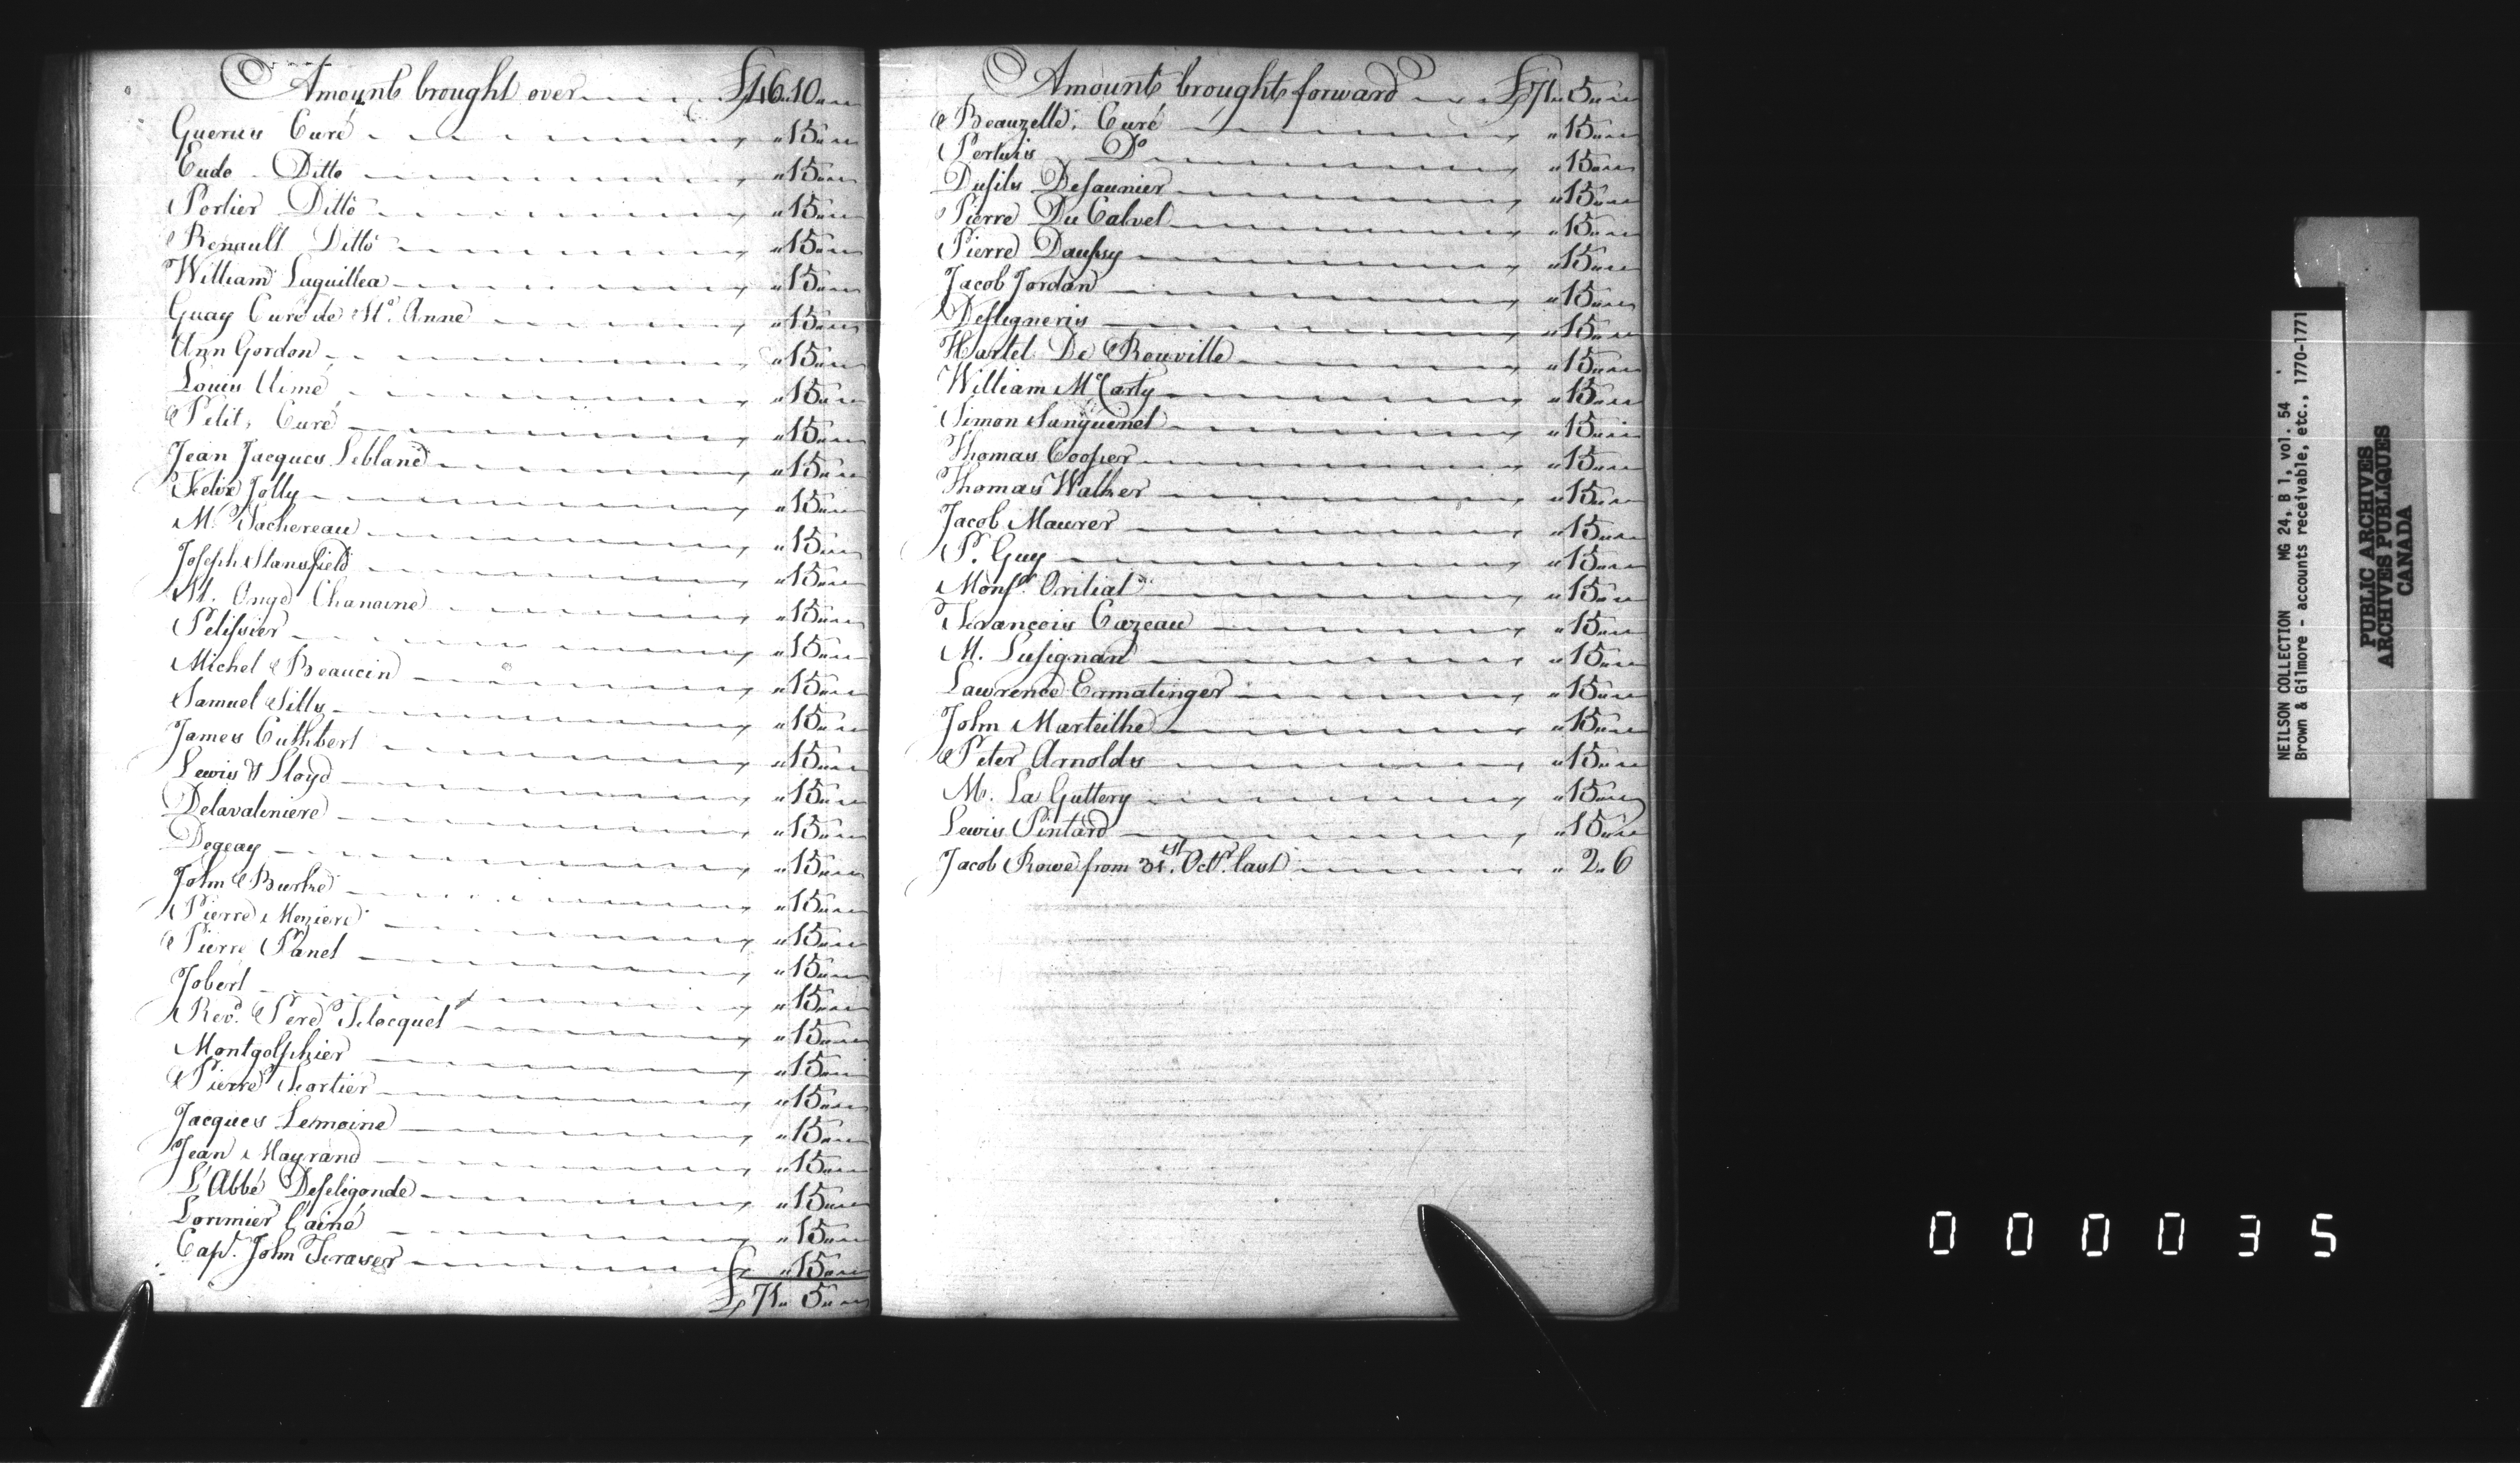 Amount brought over £46 „ 10 „ „
Guerus Curé „ 15 „ „
Eudo Ditto „ 15 „ „
Portier Ditto „ 15 „ „
Renault Ditto „ 15 „ „
William Laguillea „ 15 „ „
Guay Curé de Ste. Anne „ 15 „ „
Ann Gordon „ 15 „ „
Louis Aimé „ 15 „ „
Petit, Curé „ 15 „ „
Jean Jacques Leblanc „ 15 „ „
Felix Jolly „ 15 „ „
M. Juchereau „ 15 „ „
Joseph Stansfield „ 15 „ „
St. Onge Chanoine „ 15 „ „
Pelissier „ 15 „ „
Michel Beaucin „ 15 „ „
Samuel Sills „ 15 „ „
James Cuthbert „ 15 „ „
Lewis Lloyd „ 15 „ „
Delavaliniere „ 15 „ „
Degeay „ 15 „ „
John Burke „ 15 „ „
Pierre Meziere „ 15 „ „
Pierre Panet „ 15 „ „
Jobert „ 15 „ „
Revd. Pere Flocquet „ 15 „ „
Montgolphier „ 15 „ „
Pierre Fortier „ 15 „ „
Jacques Lemoine „ 15 „ „
Jean Mayrand „ 15 „ „
L'Abbé Deseligonde „ 15 „ „
Lorimier l'ainé „ 15 „ „
Capt. John Fraser „ 15 „ „
£ 71 „ 5 „ „
Amount brought forward £71 „ 5 „ „
Beauzelle, Curé „ 15 „ „
Pertuis Do „ 15 „ „
Dufils Desaunier „ 15 „ „
Pierre Du Calvet „ 15 „ „
Pierre „ 15 „ „
Jacob Jordan „ 15 „ „
Desligneris „ 15 „ „
Hartel De Rouville „ 15 „ „
William McCarty „ 15 „ „
Simon Sanguenet „ 15 „ „
Thomas Cooper „ 15 „ „
Thomas Walker „ 15 „ „
Jacob Maurer „ 15 „ „
P. Guy „ 15 „ „
Monsr. Orilliat „ 15 „ „
Francois Cazeau „ 15 „ „
M. Lusignan „ 15 „ „
Lawrence Ermatinger „ 15 „ „
John Marteilhe „ 15 „ „
Peter Arnoldy „ 15 „ „
M. La Guttery „ 15 „ „
Lewis Pintard „ 15 „ „
Jacob Rowe from 31st. Octr. last „ 2 „ 6
NEILSON COLLECTION MG 24, B 1, vol. 54
Brown & Gilmore - accounts receivable, etc., 1770-1771
PUBLIC ARCHIVES
ARCHIVES PUBLIQUES
CANADA
0 0 0 0 3 5